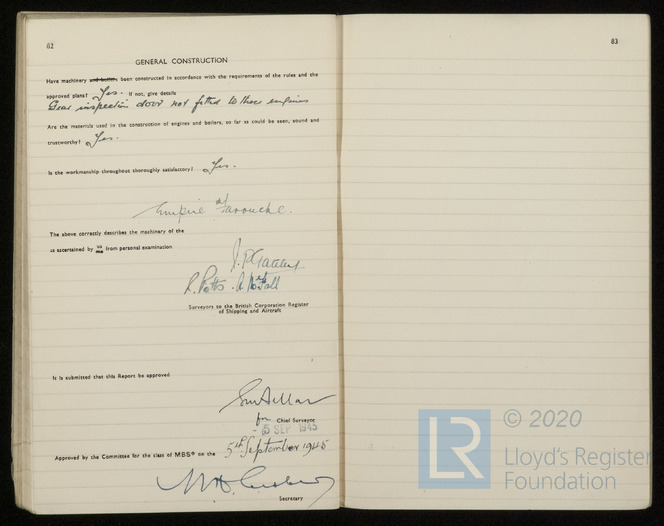 82
GENERAL CONSTRUCTION
Have machinery and boilers been constructed in accordance with the requirements of the rules and the
approved plans? Yes. If not, give details
Gear inspection door not fitted to these engines
Are the materials used in the construction of engines and boilers, so far as could be seen, sound and
trustworthy? Yes.
Is the workmanship throughout thoroughly satisfactory? Yes.
Empire Farouche.
The above correctly describes the machinery of the
as ascertained by us/me from personal examination
R. Potts
Surveyors to the British Corporation Register
of Shipping and Aircraft
It is submitted that this Report be approved
for Chief Surveyor
5 SEP 1945
Approved by the Committee for the class of MBS* on the 5th September 1945
Secretary
83
© 2020
LR
Lloyd's Register
Foundation